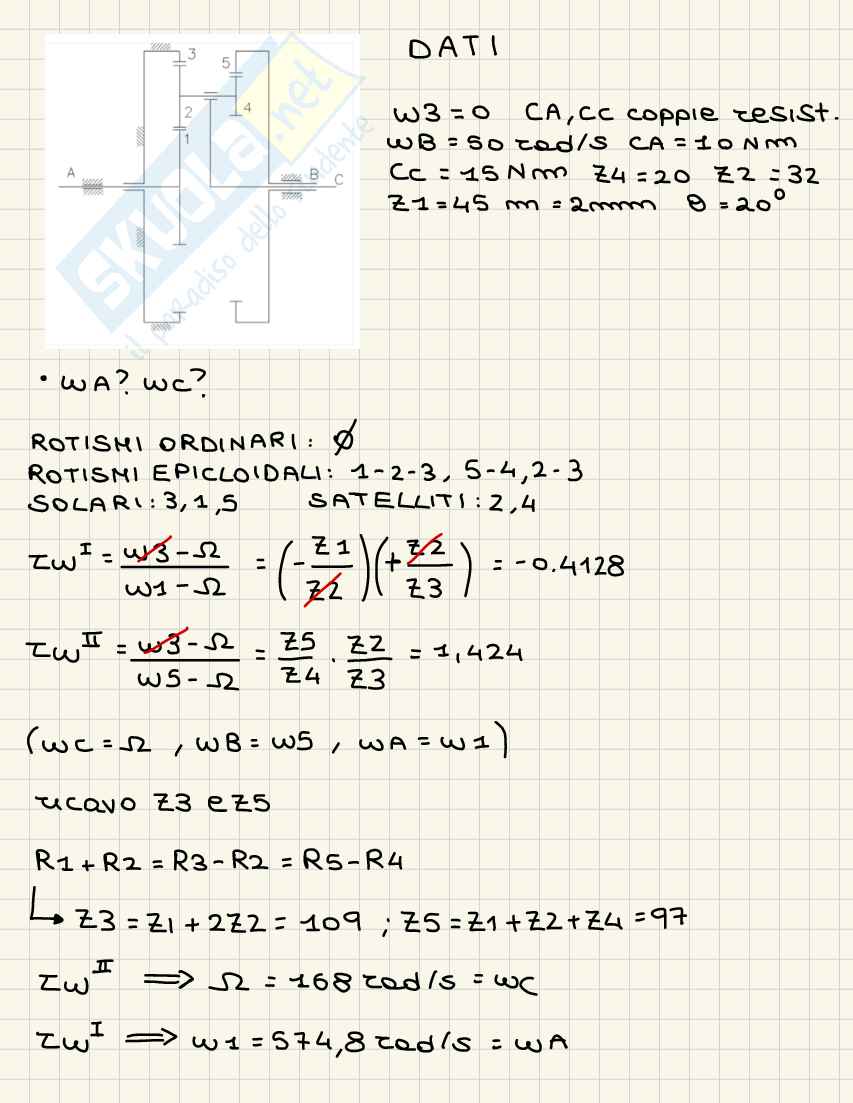 DATI
3
5
2
4
1
A
B
C
SKUOLA.net
il paradiso dello studente
w3=0 CA, Cc coppie resist.
wB=50 rad/s CA=10Nm
Cc=15Nm Z4=20 Z2=32
Z1=45 m=2mm θ=20°
• wA? wc?
ROTISMI ORDINARI: Ø
ROTISMI EPICLOIDALI: 1-2-3, 5-4,2-3
SOLARI: 3,1,5 SATELLITI: 2,4
τw^I = (w3-Ω)/(w1-Ω) = (-Z1/Z2)(+Z2/Z3) = -0.4128
τw^II = (w3-Ω)/(w5-Ω) = Z5/Z4 · Z2/Z3 = 1,424
(wc=Ω, wB=w5, wA=w1)
ricavo Z3 e Z5
R1+R2=R3-R2=R5-R4
↳ Z3=Z1+2Z2=109 ; Z5=Z1+Z2+Z4=97
τw^II ⟹ Ω=168 rad/s=wc
τw^I ⟹ w1=574,8 rad/s=wA